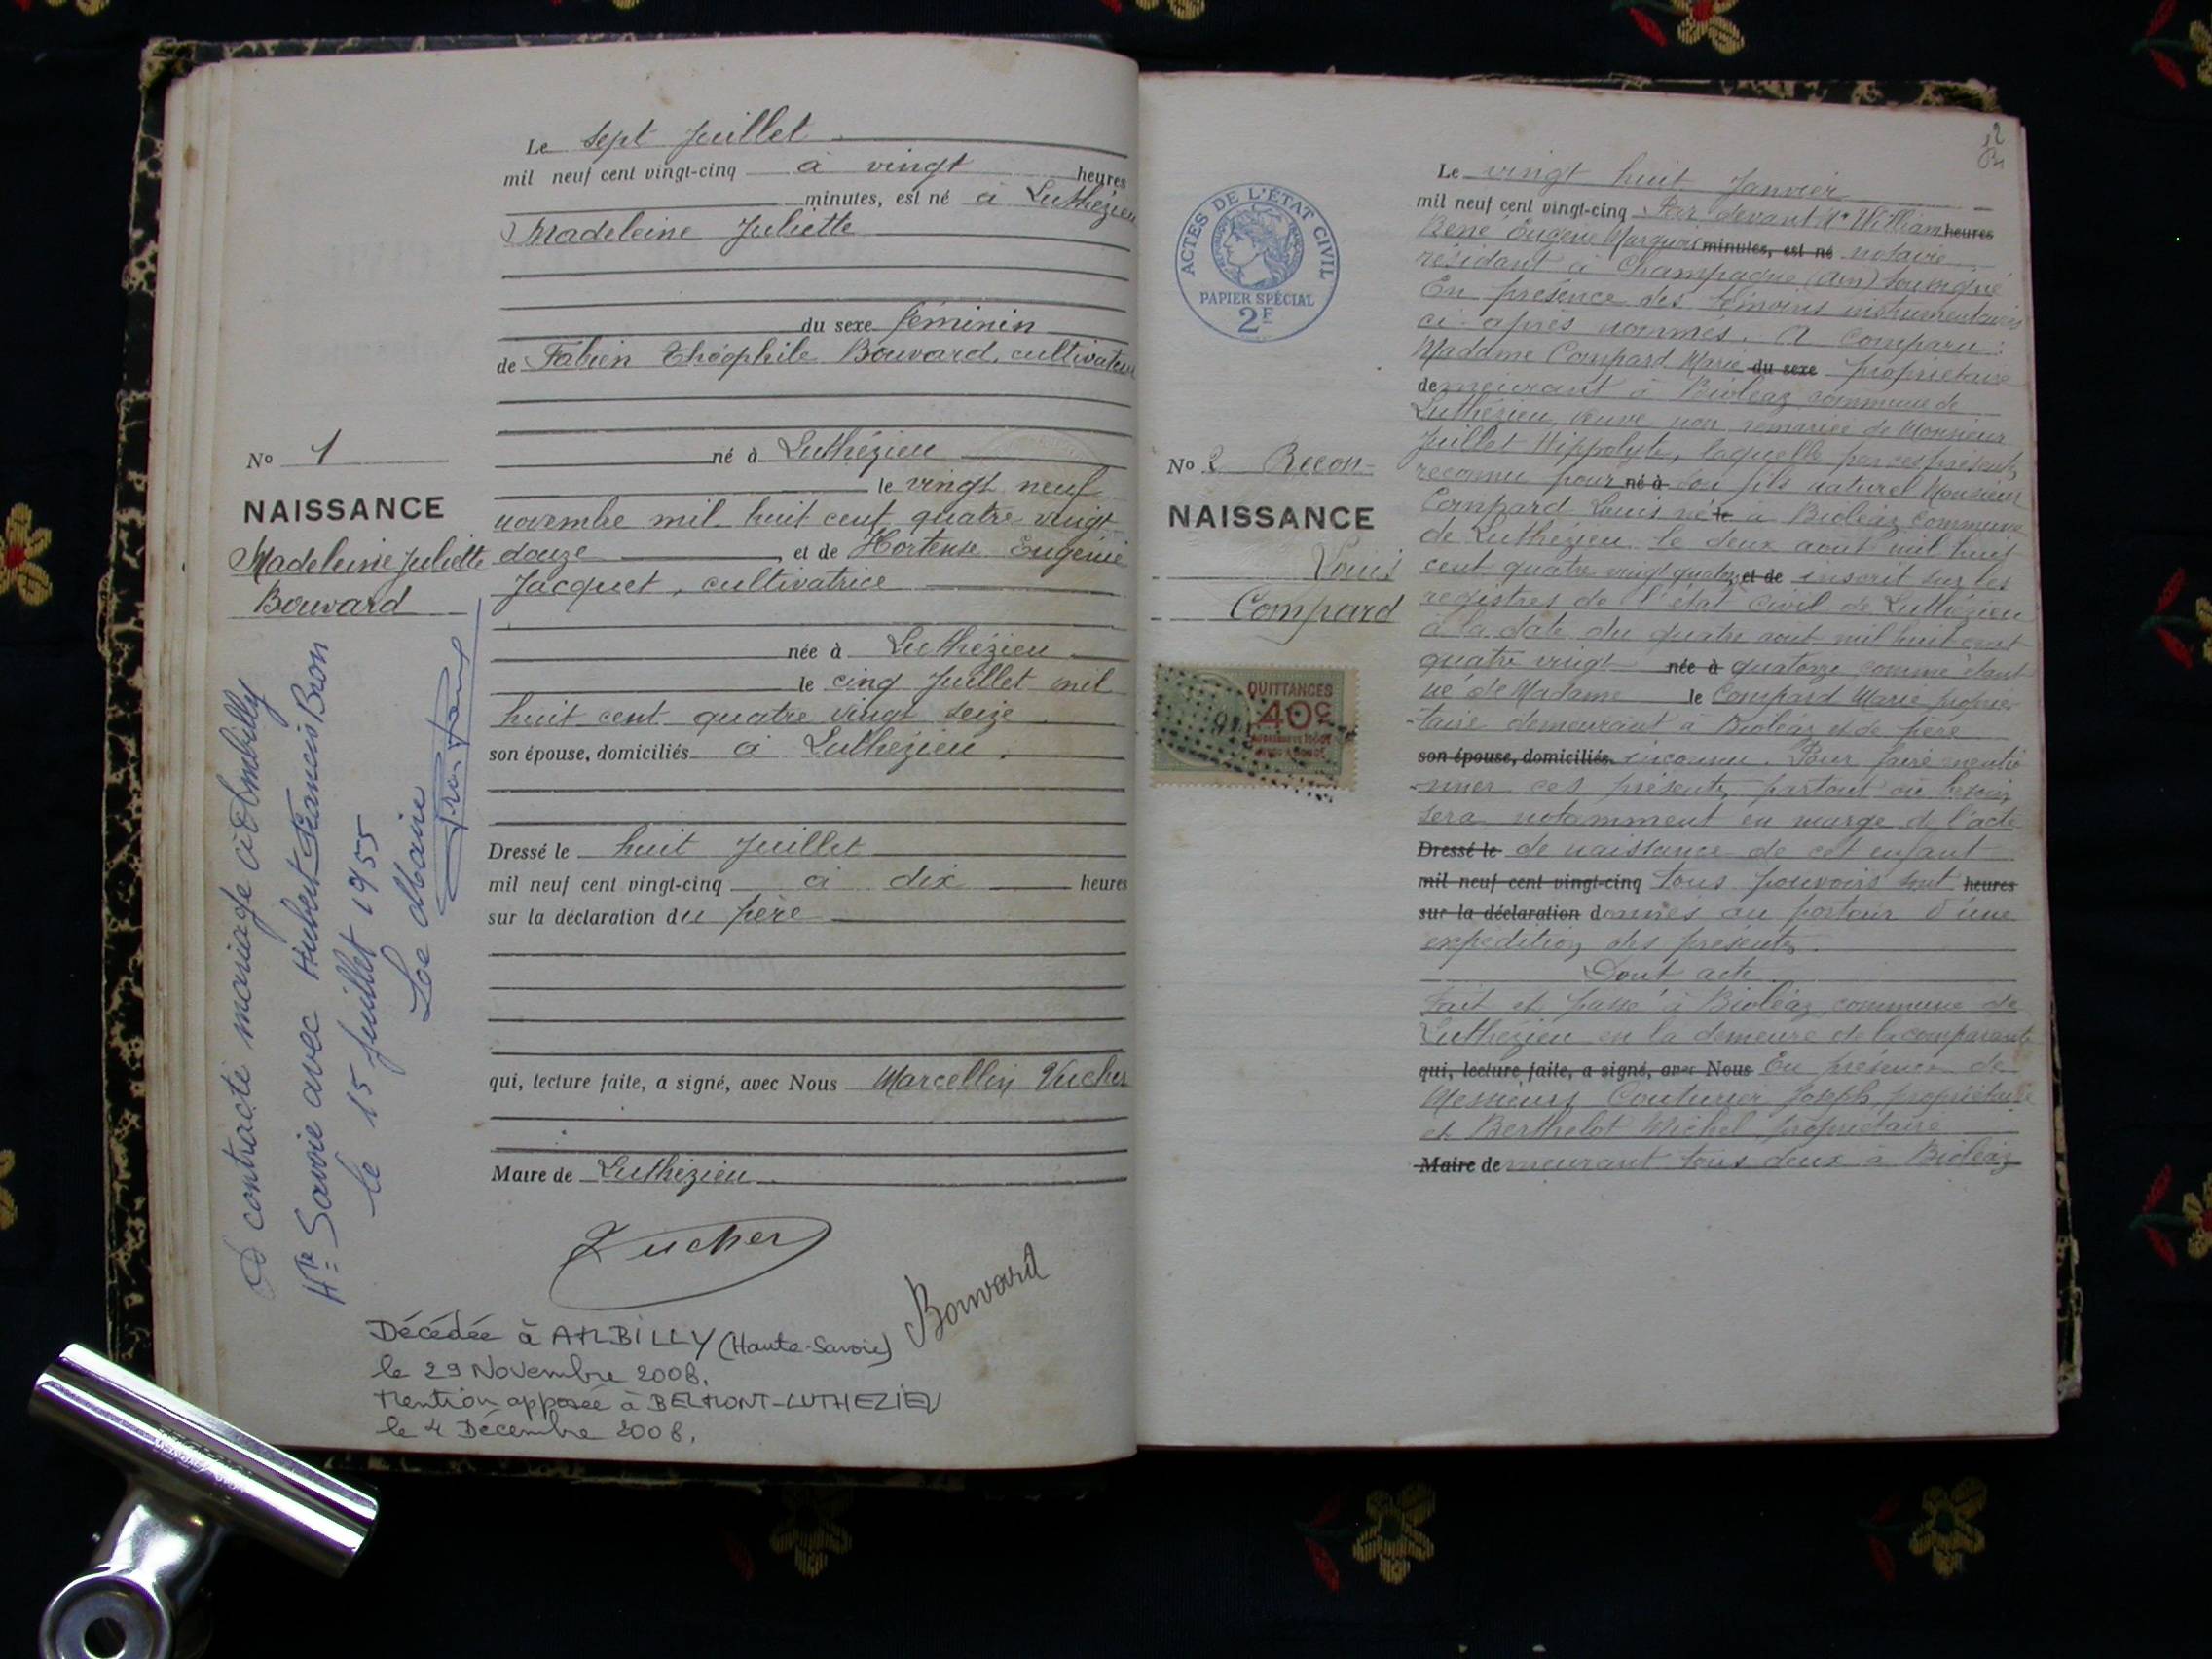 Le sept Juillet
mil neuf cent vingt-cinq à vingt heures
minutes, est né à Luthézieu
Madeleine Juliette
du sexe féminin
de Fabien Théophile Bouvard, cultivateur
né à Luthézieu
le vingt neuf
novembre mil huit cent quatre vingt
douze, et de Hortense Eugénie
Jacquet, cultivatrice
née à Luthézieu
le cinq Juillet mil
huit cent quatre vingt seize
son épouse, domiciliés à Luthézieu.
Dressé le huit Juillet
mil neuf cent vingt-cinq à dix heures
sur la déclaration du père
qui, lecture faite, a signé, avec Nous Marcellin Vucher
Maire de Luthézieu
Vucher
Bouvard
No 1
NAISSANCE
Madeleine Juliette
Bouvard
A contracté mariage à Ambilly
Hte Savoie avec Hubert Francis Bron
le 15 juillet 1955
Le Maire
Décédée à AMBILLY (Haute-Savoie)
le 29 Novembre 2008.
Mention apposée à BELMONT-LUTHEZIEU
le 4 Décembre 2008.
2
ACTES DE L'ÉTAT CIVIL
PAPIER SPÉCIAL
2F
No 2 Recon-
NAISSANCE
Louis
Compard
QUITTANCES
40c
Le vingt huit Janvier
mil neuf cent vingt-cinq Par devant Me William heures
René Eugène minutes, est né notaire
résidant à Champagne (Ain) soussigné
En présence des témoins instrumentaires
ci-après nommés. A comparu:
Madame Compard Marie du sexe propriétaire
demeurant à Bioléaz commune de
Luthézieu, veuve non remariée de Monsieur
Juillet Hippolyte, laquelle par ces présentes
reconnu pour né à son fils naturel Monsieur
Compard Louis né le à Bioléaz commune
de Luthézieu le deux aout mil huit
cent quatre vingt quatorze et de inscrit sur les
registres de l'état civil de Luthézieu
à la date du quatre aout mil huit cent
quatre vingt née à quatorze comme étant
né de Madame le Compard Marie proprié-
taire demeurant à Bioléaz et de père
son épouse, domiciliés inconnu. Pour faire mentio
-nner ces présentes partout où besoin
sera notamment en marge de l'acte
Dressé le de naissance de cet enfant
mil neuf cent vingt-cinq tous pouvoirs sont heures
sur la déclaration donnés au porteur d'une
expédition des présentes.
Dont acte
Fait et passé à Bioléaz commune de
Luthézieu en la demeure de la comparante
qui, lecture faite, a signé, avec Nous En présence de
Messieurs Couturier Joseph, propriétaire
et Berthelot Michel propriétaire
Maire demeurant tous deux à Bioléaz